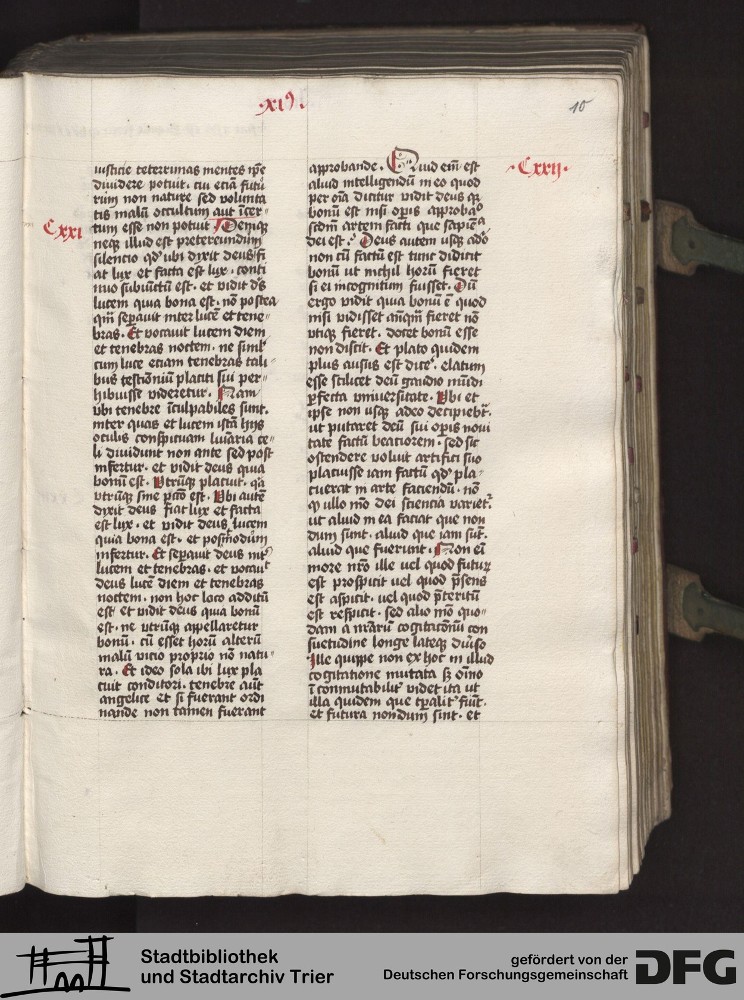 .xi9.
10
iusticie teterrimas mentes ip̄e
diuidere potuit. cui eciā futu
rum non nature sed volunta
tis malū occultum aut īcer-
tum esse non potuit. Deniqꝫ
Cxxi
neqꝫ illud est pretereundum
silencio qd' ubi dixit deus fi
at lux et facta est lux. conti
nuo subiūctū est. et vidit d's
lucem quia bona est. nō postea
qm̄ sepauit inter lucē et tene
bras. Et vocauit lucem diem
et tenebras noctem. ne siml'
cum luce etiam tenebras tali
bus testīoniū placiti sui per
hibuisse videretur. Nam
vbi tenebre īculpabiles sunt.
inter quas et lucem istā hijs
oculis conspicuam luīaria ce
li diuidunt non ante sed post
infertur. et vidit deus quia
bonū est. Vtrūqꝫ placuit. qa
vtrūqꝫ sine pctō est. Vbi autē
dixit deus fiat lux et facta
est lux. et vidit deus lucem
quia bona est. et postmodum
infertur. Et sepauit deus int'
lucem et tenebras. et vocauit
deus lucē diem et tenebras
noctem. non hoc loco additū
est et vidit deus quia bonū
est. ne vtrūqꝫ appellaretur
bonū. cū esset horū alterū
malū vicio proprio nō natu
ra. Et ideo sola ibi lux pla
cuit conditori. tenebre aūt
angelice et si fuerant ordi
nande non tamen fuerant
approbande. Quid eīn est
.Cxxij.
aliud intelligendū in eo quod
per oīa dicitur vidit deus qꝫ
bonū est nisi opis approbaō
scdm̄ artem facti que sapien̄
dei est. Deus autem usqꝫ adō
non cū factū est tunc didicit
bonū ut nichil horū fieret
si ei incognitum fuisset. Dū
ergo vidit quia bonū ē quod
nisi vidisset anq̄m fieret nō
vtiqꝫ fieret. docet bonū esse
non discit. Et plato quidem
plus ausus est dice'. elatum
esse scilicet deū gaudio mūdi
perfecta vniuersitate. Vbi et
ipse non usqꝫ adeo decipiebat'.
ut putaret deū sui opis noui
tate factū beatiorem. sed sic
ostendere voluit artifici suo
placuisse iam factū qd' pla
cuerat in arte faciendū. nō
q' ullo mō dei sciencia variet'.
ut aliud in ea faciat que non
dum sunt. aliud que iam sūt.
aliud que fuerunt. Non eī
more nr̄o ille vel quod futurꝝ
est prospicit uel quod p̄sens
est aspicit. vel quod p̄teritū
est respicit. sed alio mō quo
dam a nr̄arū cogitationū con
suetudine longe lateqꝫ diu'so
Ille quippe non ex hoc in illud
cogitatione mutata sꝫ oīno
īconmutabilit' videt ita ut
illa quidem que tp̄alit' fiūt.
et futura nondum sint. et
Stadtbibliothek
und Stadtarchiv Trier
gefördert von der
Deutschen Forschungsgemeinschaft
DFG